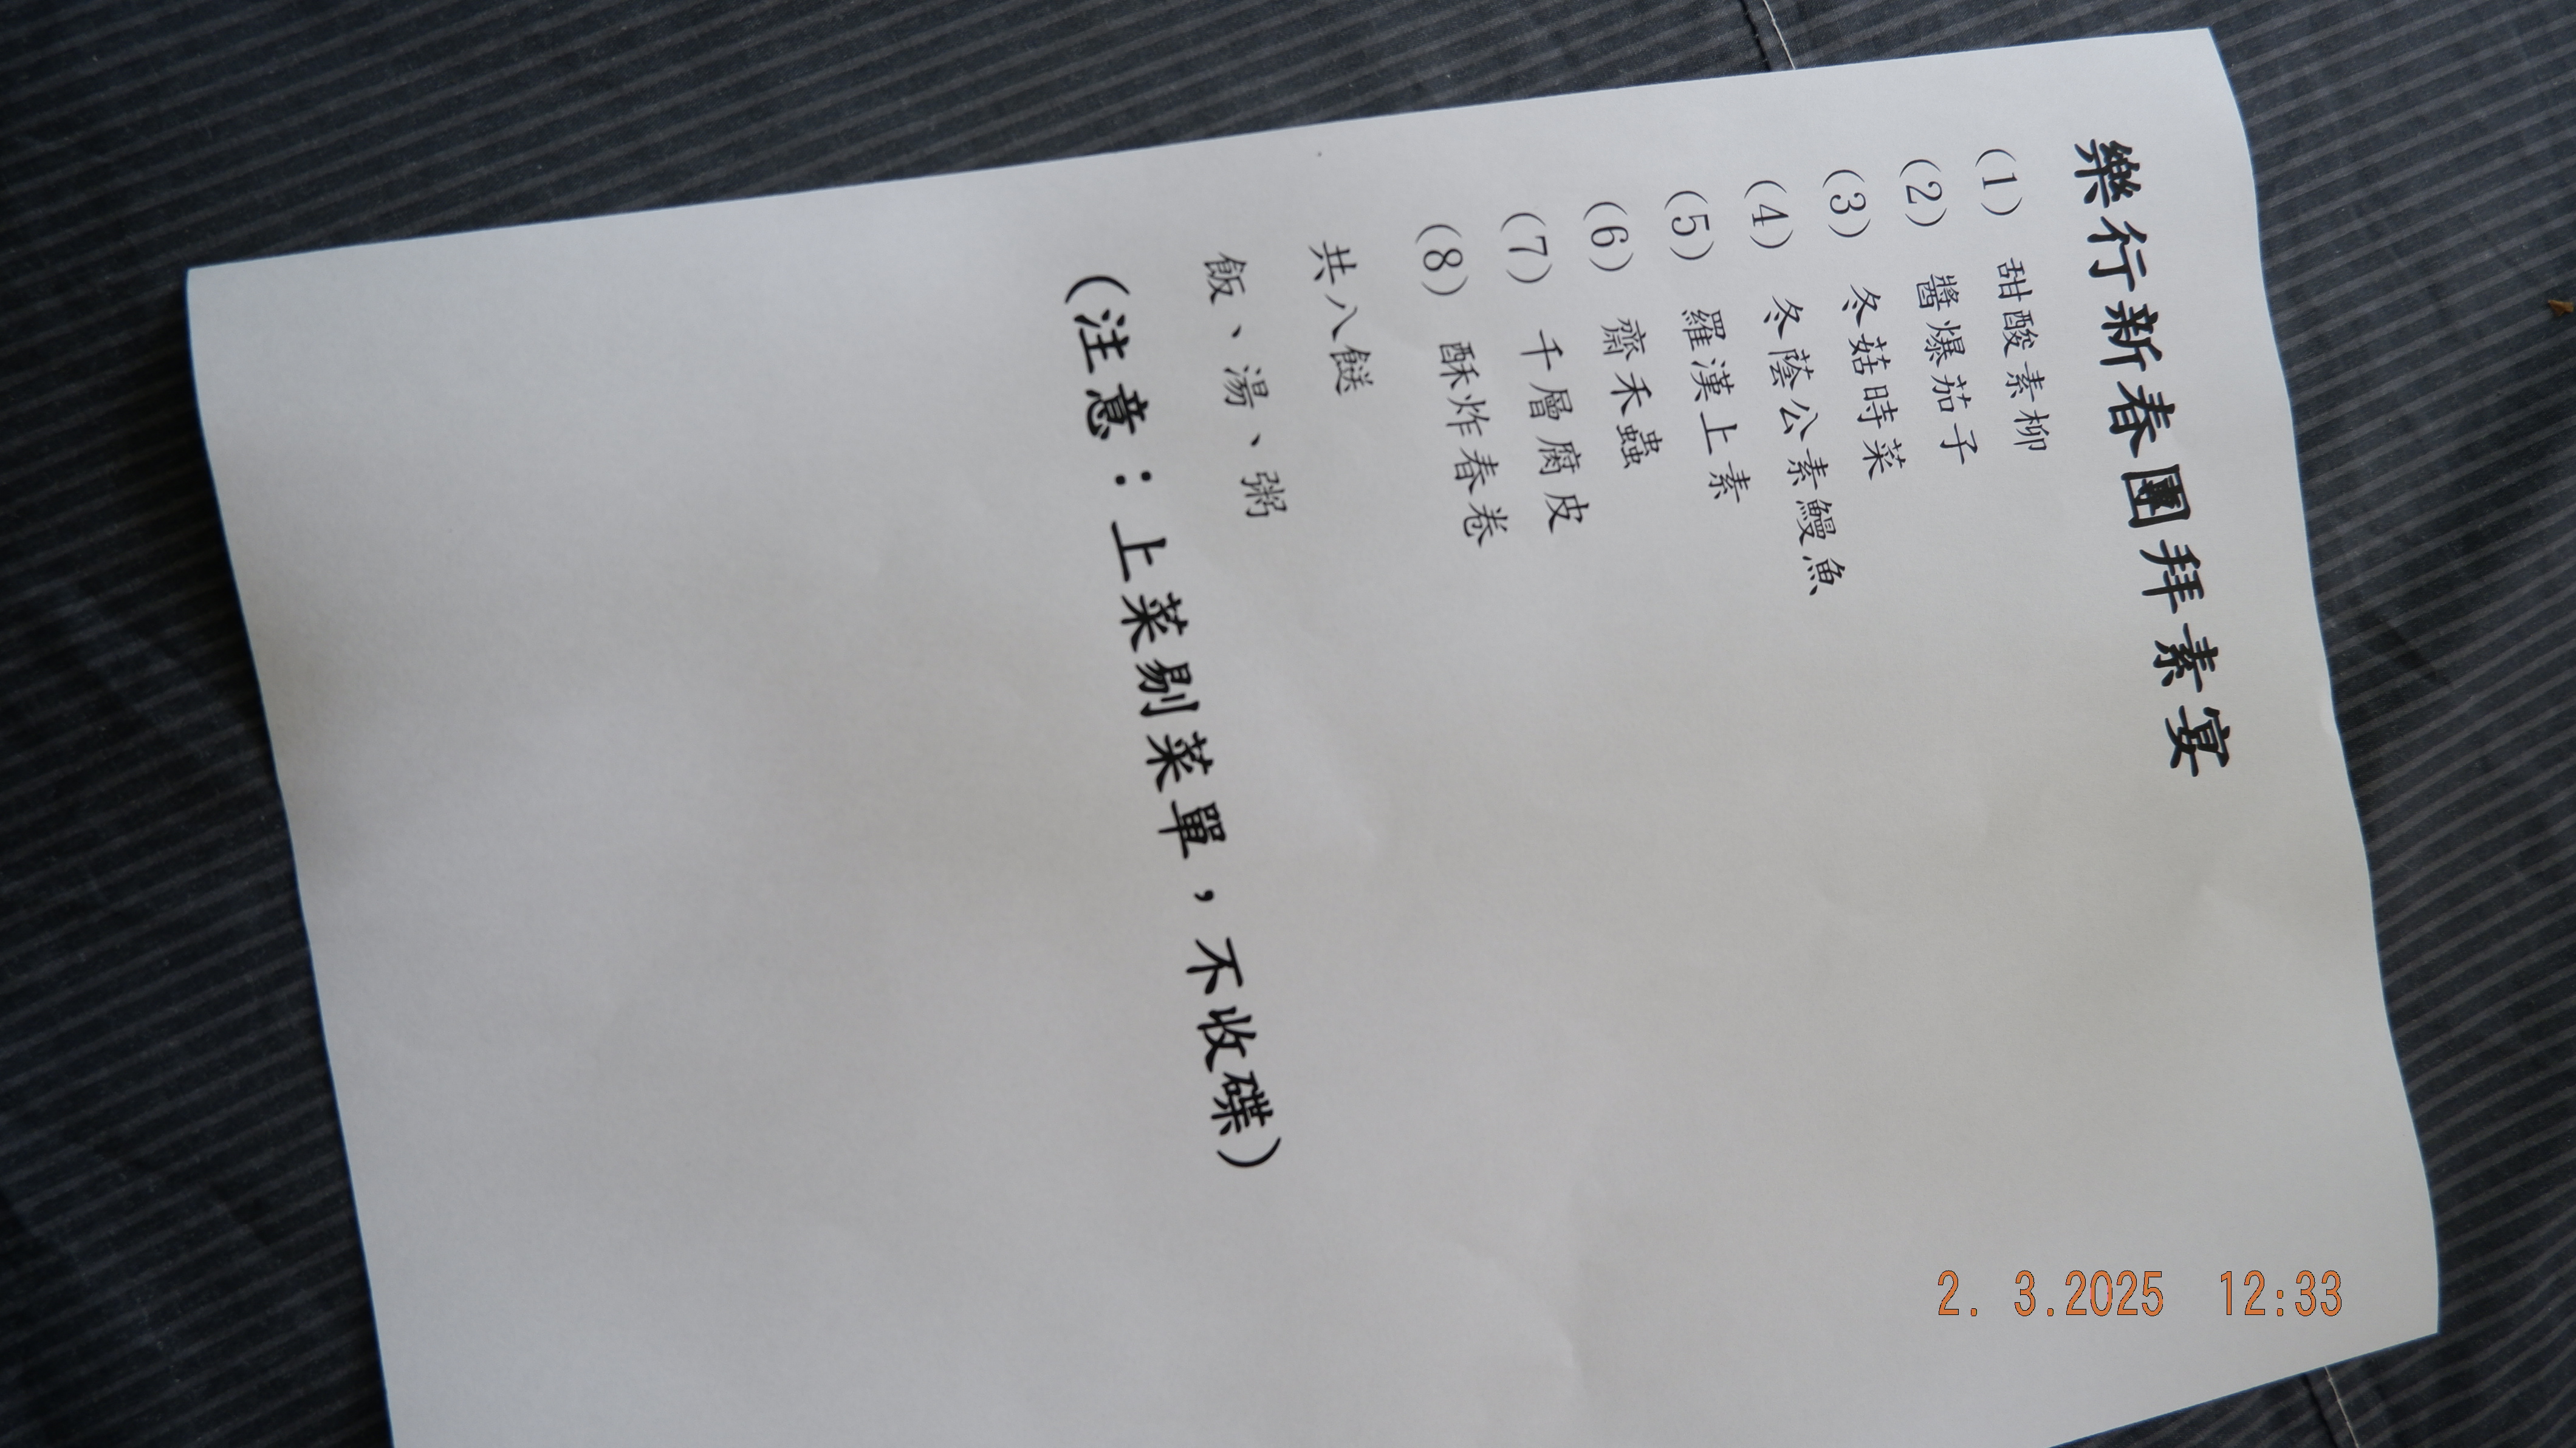 樂行新春團拜素宴
(1) 甜酸素柳
(2) 醬爆茄子
(3) 冬菇時菜
(4) 冬蔭公素鰻魚
(5) 羅漢上素
(6) 齋禾蟲
(7) 千層腐皮
(8) 酥炸春卷
共八餸
飯、湯、粥
(注意：上菜剔菜單，不收碟)
2. 3.2025 12:33